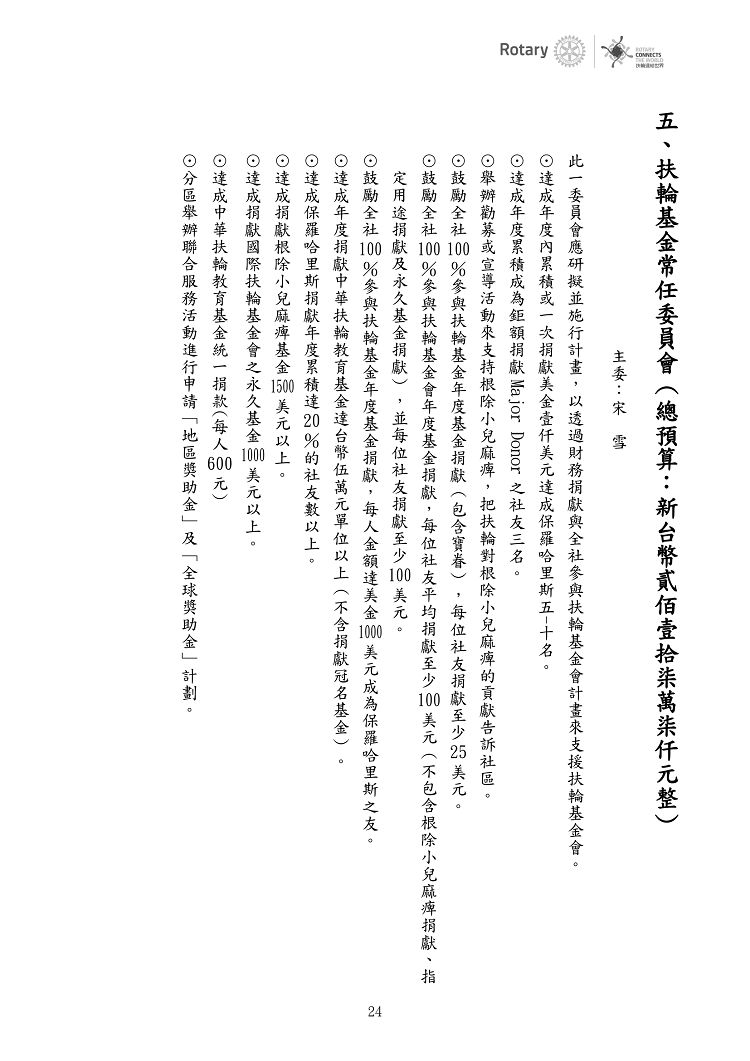 Rotary
ROTARY
CONNECTS
THE WORLD
扶輪連結世界
五、扶輪基金常任委員會（總預算：新台幣貳佰壹拾柒萬柒仟元整）
主委：宋　雪
此一委員會應研擬並施行計畫，以透過財務捐獻與全社參與扶輪基金會計畫來支援扶輪基金會。
⊙達成年度內累積或一次捐獻美金壹仟美元達成保羅哈里斯五-十名。
⊙達成年度累積成為鉅額捐獻 Major Donor 之社友三名。
⊙舉辦勸募或宣導活動來支持根除小兒麻痺，把扶輪對根除小兒麻痺的貢獻告訴社區。
⊙鼓勵全社 100％參與扶輪基金年度基金捐獻（包含寶眷），每位社友捐獻至少 25 美元。
⊙鼓勵全社 100％參與扶輪基金會年度基金捐獻，每位社友平均捐獻至少 100 美元（不包含根除小兒麻痺捐獻、指
定用途捐獻及永久基金捐獻），並每位社友捐獻至少 100 美元。
⊙鼓勵全社 100％參與扶輪基金年度基金捐獻，每人金額達美金 1000 美元成為保羅哈里斯之友。
⊙達成年度捐獻中華扶輪教育基金達台幣伍萬元單位以上（不含捐獻冠名基金）。
⊙達成保羅哈里斯捐獻年度累積達 20％的社友數以上。
⊙達成捐獻根除小兒麻痺基金 1500 美元以上。
⊙達成捐獻國際扶輪基金會之永久基金 1000 美元以上。
⊙達成中華扶輪教育基金統一捐款(每人 600 元)
⊙分區舉辦聯合服務活動進行申請「地區獎助金」及「全球獎助金」計劃。
24